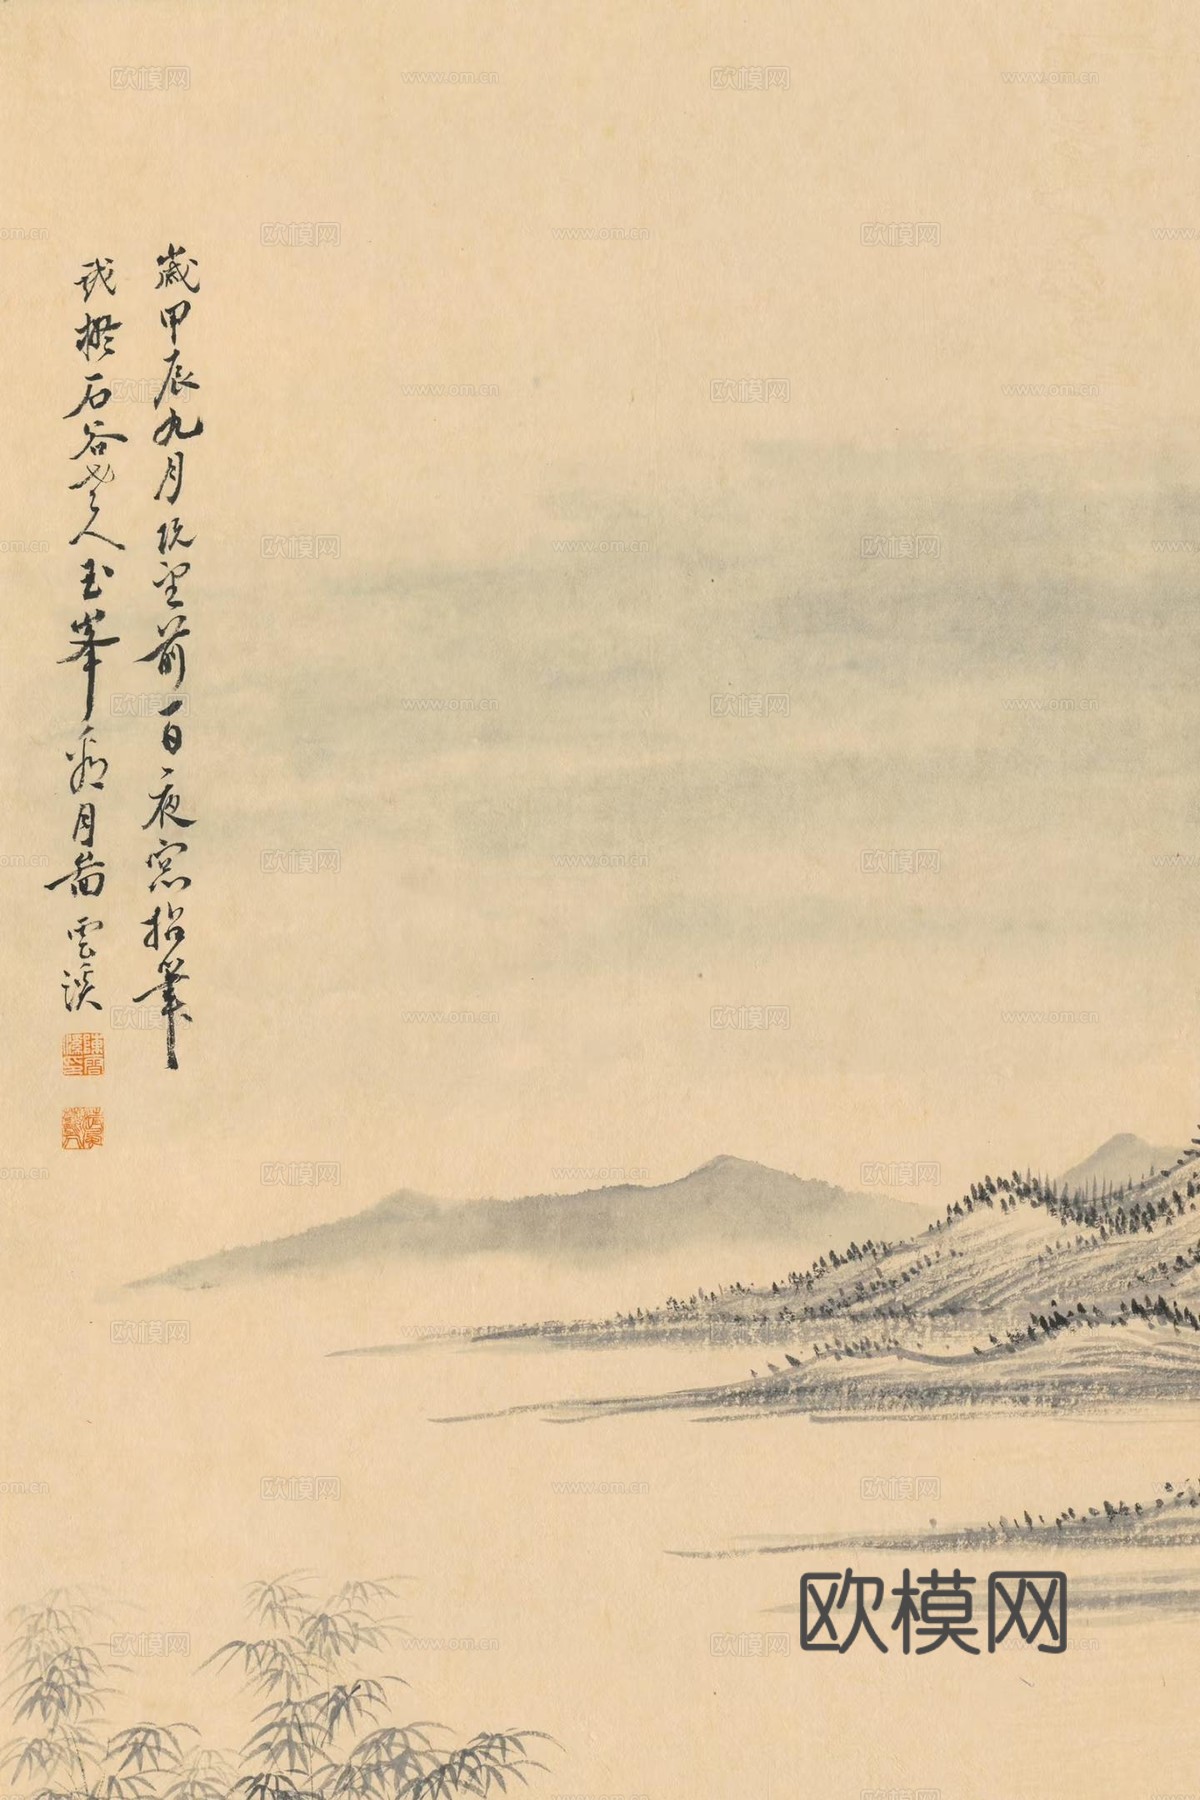 歲甲辰九月既望前一日夜窓拈筆
戲橅石谷老人玉峯看月啚 雲溪
欧模网
www.om.cn